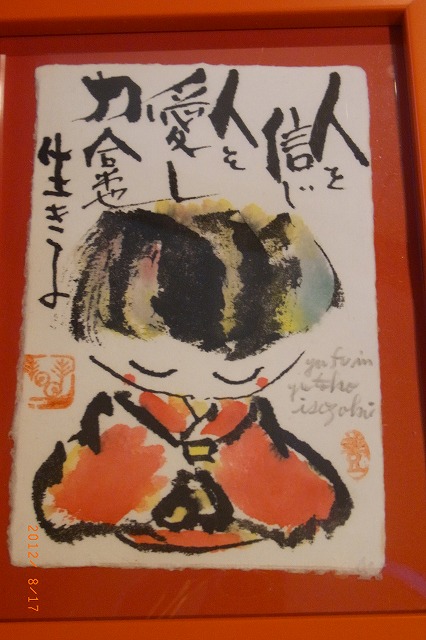 人を
信じ
人を
愛し
力合せ
yufuin
yutaka
isozaki
2012/ 8/17